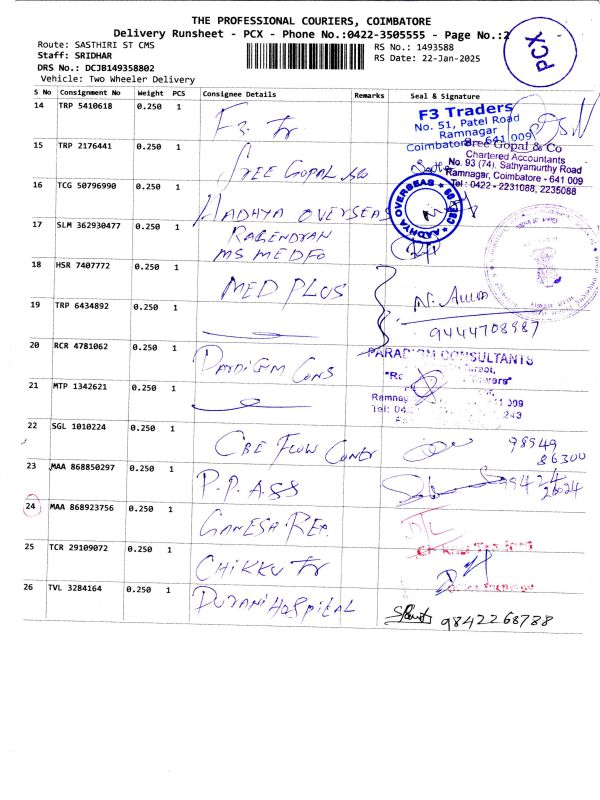 THE PROFESSIONAL COURIERS, COIMBATORE
Delivery Runsheet - PCX - Phone No.:0422-3505555 - Page No.:2
PCX
Route: SASTHIRI ST CMS
RS No.: 1493588
Staff: SRIDHAR
RS Date: 22-Jan-2025
DRS No.: DCJB149358802
Vehicle: Two Wheeler Delivery
S No Consignment No Weight PCS Consignee Details Remarks Seal & Signature
14 TRP 5410618 0.250 1 F3. Tr
F3 Traders
No. 51, Patel Road
Ramnagar
Coimbatore - 641 009
15 TRP 2176441 0.250 1 SREE GOPAL
Sree Gopal & Co
Chartered Accountants
No. 93 (74), Sathyamurthy Road
Ramnagar, Coimbatore - 641 009
Tel : 0422 - 2231088, 2235088
16 TCG 50796990 0.250 1 AADHYA OVERSEAS
AADHYA OVERSEAS
17 SLM 362930477 0.250 1 RAGENDRAN
MS MEDFO
18 HSR 7407772 0.250 1 MED PLUS
19 TRP 6434892 0.250 1
9444708987
20 RCR 4781062 0.250 1 PARDIGM CONS
PARADIGM CONSULTANTS
21 MTP 1342621 0.250 1
22 SGL 1010224 0.250 1 CBE FLOW CONTR
98949
86300
23 MAA 868850297 0.250 1 P.P.ASS
99424
26024
24 MAA 868923756 0.250 1 GANESH REP.
25 TCR 29109072 0.250 1 CHIKKU Tr
26 TVL 3284164 0.250 1 DURANI HOSPITAL
9842268788